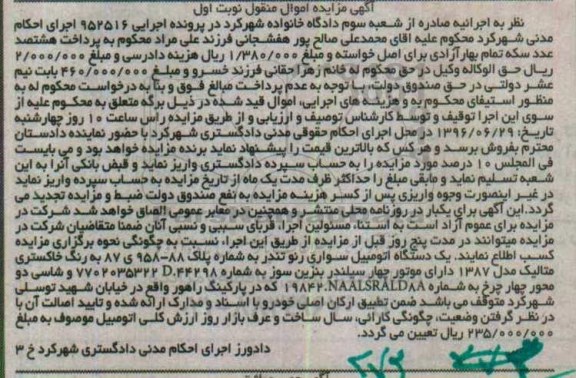 آگهی مزایده اموال منقول نوبت اول
نظر به اجرائیه صادره از شعبه سوم دادگاه خانواده شهرکرد در پرونده اجرایی ۹۵۲۵۱۶ اجرای احکام
مدنی شهرکرد محکوم علیه آقای محمدعلی صالح پور هفشجانی فرزند علی مراد محکوم به پرداخت هشتصد
عدد سکه تمام بهار آزادی برای اصل خواسته و مبلغ ۱/۳۸۰/۰۰۰ ریال هزینه دادرسی و مبلغ ۲/۰۰۰/۰۰۰
ریال حق الوکاله وکیل در حق محکوم له خانم زهرا حقانی فرزند خسرو و مبلغ ۴۶۰/۰۰۰/۰۰۰ بابت نیم
عشر دولتی در حق صندوق دولت، با توجه به عدم پرداخت مبالغ فوق و بنا به درخواست محکوم له به
منظور استیفای محکوم به و هزینه های اجرایی، اموال قید شده در ذیل برگه متعلق به محکوم علیه از
سوی این اجرا توقیف و توسط کارشناس توصیف و ارزیابی و از طریق مزایده راس ساعت ۱۰ روز چهارشنبه
تاریخ: ۱۳۹۶/۰۶/۲۹ در محل اجرای احکام حقوقی مدنی دادگستری شهرکرد با حضور نماینده دادستان
محترم بفروش برسد و هر کس که بالاترین قیمت را پیشنهاد نماید برنده مزایده خواهد بود و می بایست
فی المجلس ۱۰ درصد مورد مزایده را به حساب سپرده دادگستری واریز نماید و قبض بانکی آنرا به این
شعبه تسلیم نماید و مابقی مبلغ را حداکثر ظرف مدت یک ماه از تاریخ مزایده به حساب سپرده واریز نماید
در غیر اینصورت وجوه واریزی پس از کسر هزینه مزایده به نفع صندوق دولت ضبط و مزایده تجدید می
گردد. این آگهی برای یکبار در روزنامه محلی منتشر و همچنین در معابر عمومی الصاق خواهد شد شرکت در
مزایده برای عموم آزاد است به استثنا، مسئولین اجرا، قربای سببی و نسبی آنان ضمنا متقاضیان شرکت در
مزایده میتوانند در مدت پنج روز قبل از مزایده از طریق این اجرا، نسبت به چگونگی نحوه برگزاری مزایده
کسب اطلاع نمایند. یک دستگاه اتومبیل سواری رنو تندر به شماره پلاک ۸۸-۹۵۸ ی ۸۷ به رنگ خاکستری
متالیک مدل ۱۳۸۷ دارای موتور چهار سیلندر بنزین سوز به شماره D.۴۴۲۹۸ ۷۷۰۲۰۳۵۳۲۲ و شاسی دو
محور چهار چرخ به شماره ۱۹۸۴۲.NAALSRALD۸۸ که در پارکینگ راهور واقع در خیابان شهید توسلی
شهرکرد متوقف می باشد ضمن تطبیق ارکان اصلی خودرو با اسناد و مدارک ارائه شده و تایید اصالت آن با
در نظر گرفتن وضعیت، چگونگی کارائی، سال ساخت و عرف بازار روز ارزش کلی اتومبیل موصوف به مبلغ
۲۳۵/۰۰۰/۰۰۰ ریال تعیین می گردد.
دادورز اجرای احکام مدنی دادگستری شهرکرد خ ۳